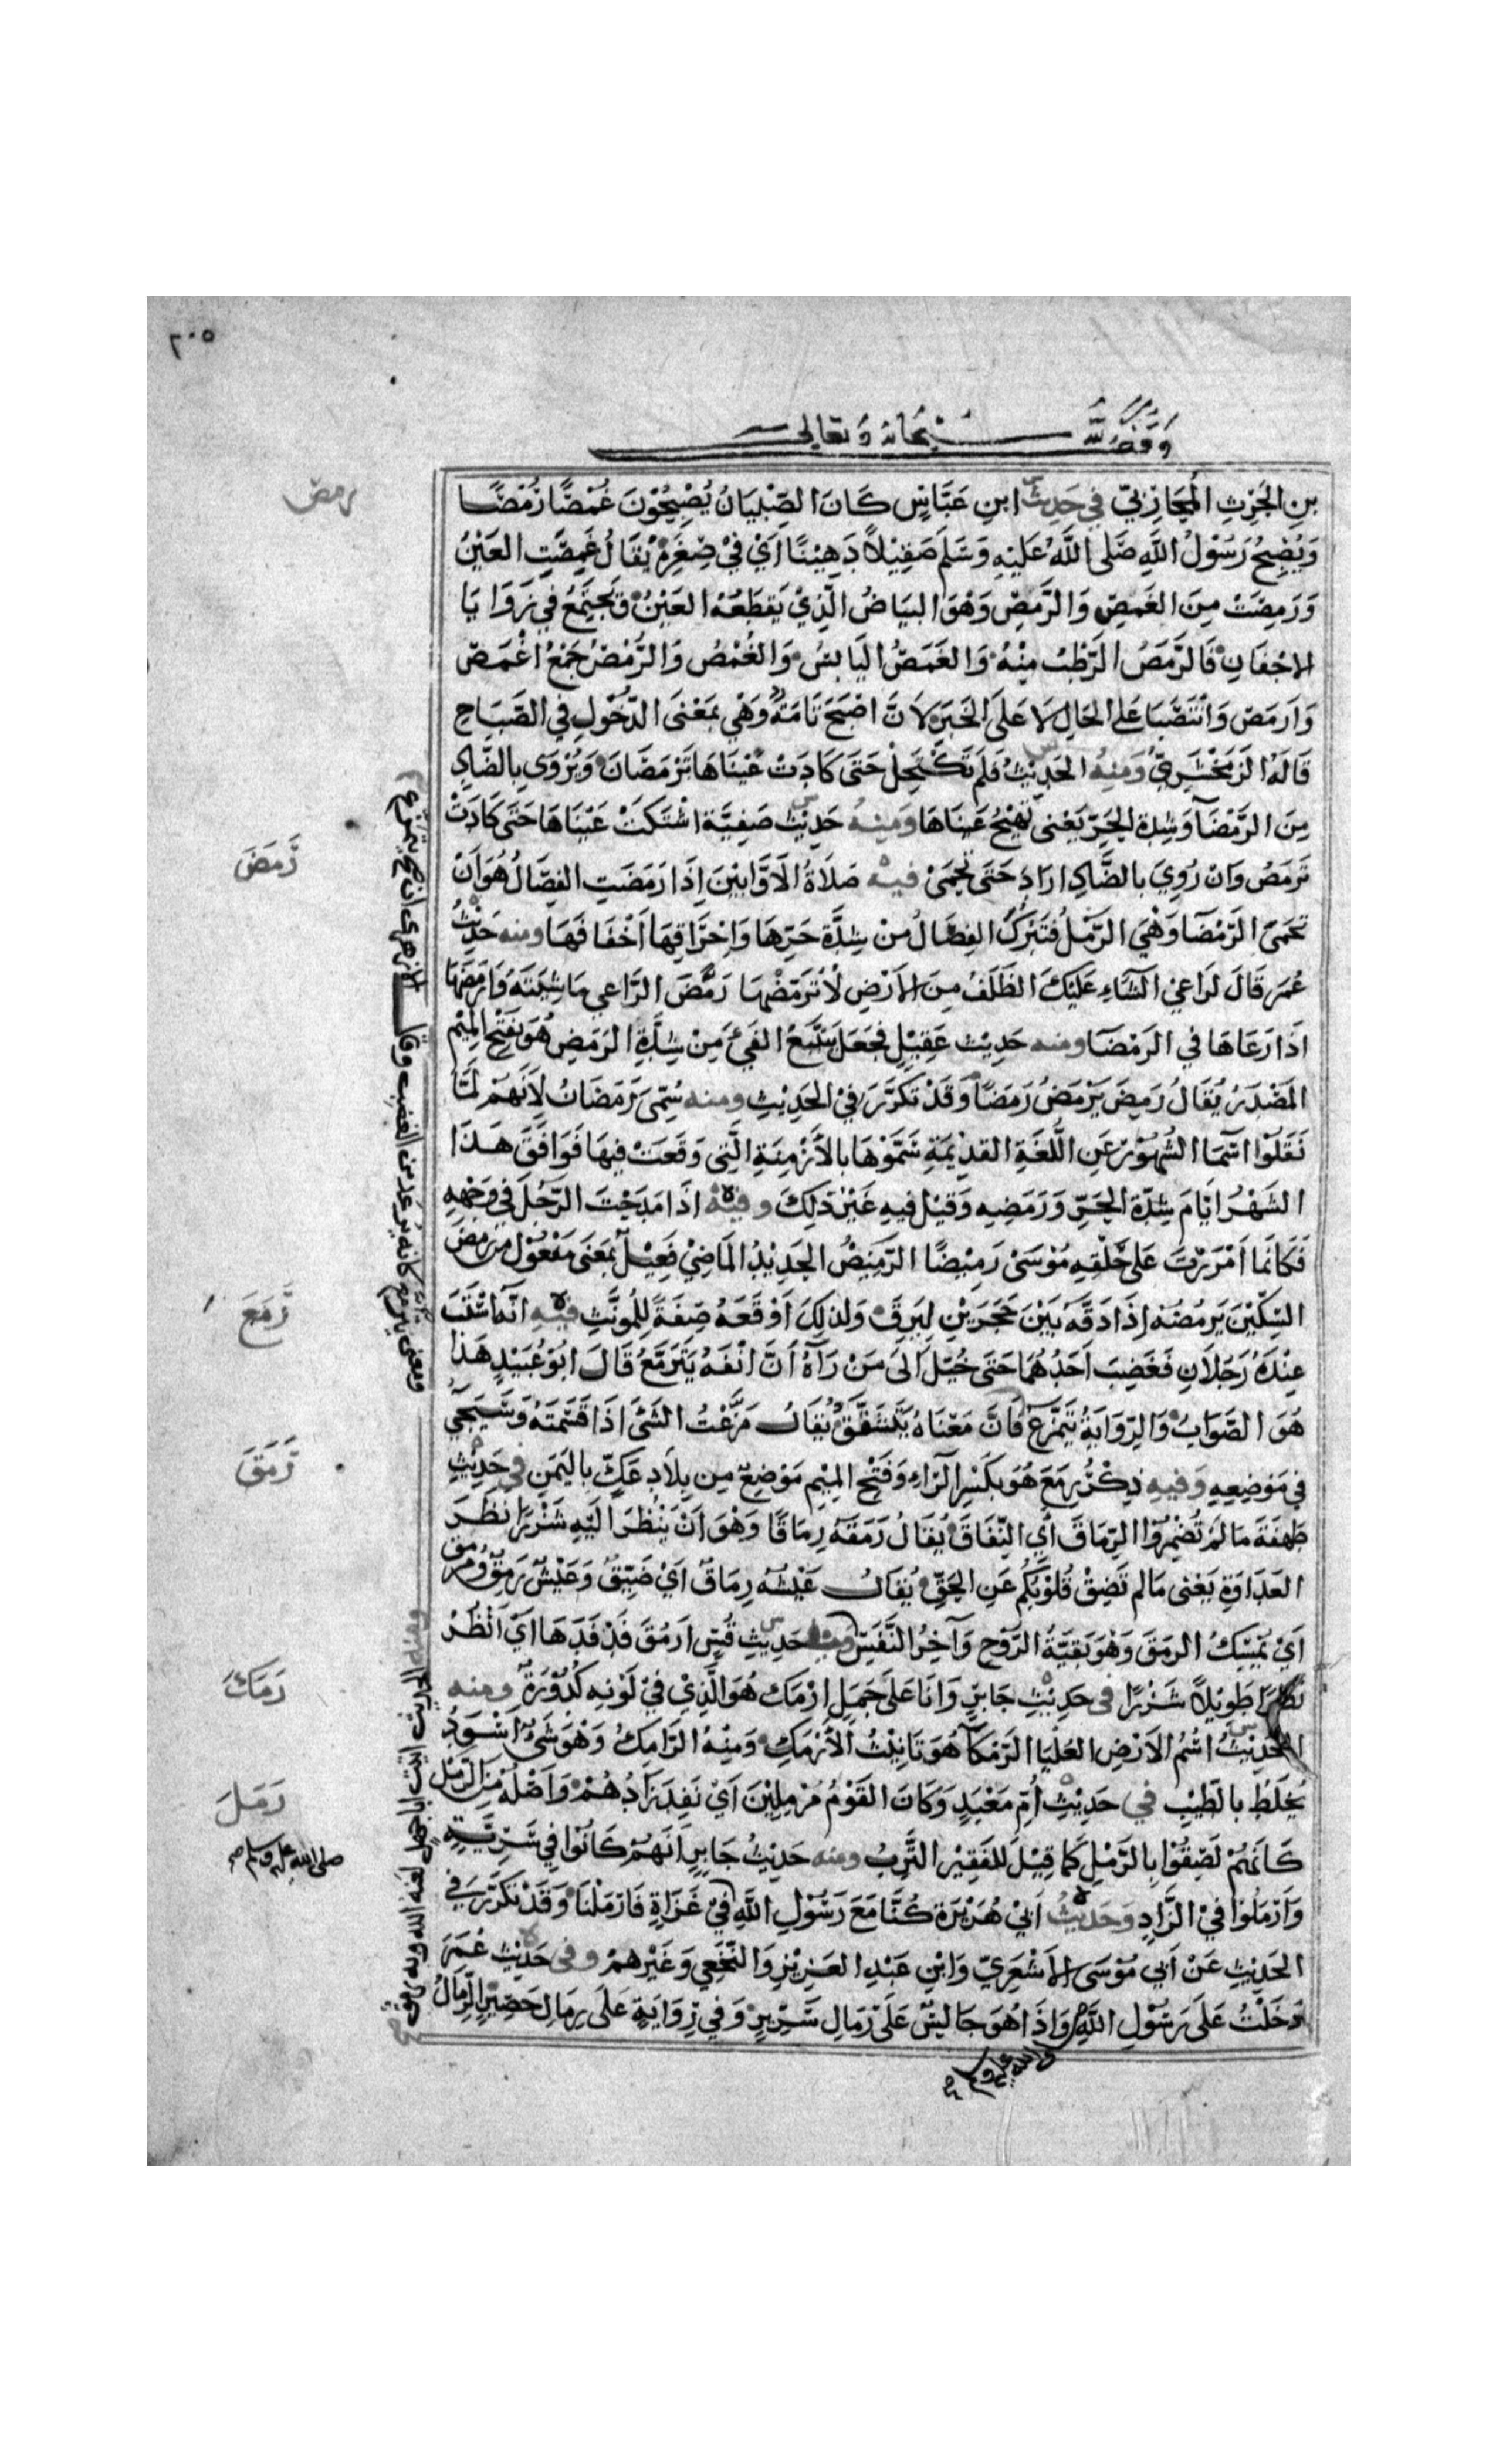 ٢٠٥
وقف لله سبحانه وتعالى
بن الحرث المحاربي في حديث ابن عباس كان الصبيان يصبحون غمصا رمصا
ويصبح رسول الله صلى الله عليه وسلم صقيلا دهينا اي في صغره يقال غمصت العين
ورمصت من الغمص والرمص وهو البياض الذي يقطعه العين ويجتمع في زوايا
الاجفان فالرمص الرطب منه والغمص اليابس والغمص والرمص جمع اغمص
وارمص وانتصبا على الحال لا على الخبر لان اصبح تامة وهي بمعنى الدخول في الصباح
قاله الزمخشري ومنه الحديث فلم تكتحل حتى كادت عيناها ترمصان ويروى بالضاد
من الرمضآ وشدة الحر يعنى تهيج عيناها ومنه حديث صفية اشتكت عيناها حتى كادت
ترمص وان روي بالضاد اراد حتى تحمى فيه صلاة الاوابين اذا رمضت الفصال هو ان
تحمى الرمضآ وهي الرمل فتبرك الفصال من شدة حرها واحراقها اخفافها ومنه حديث
عمر قال لراعي الشاء عليك الظلف من الارض لا ترمضها رمض الراعي ماشيته وارمضها
اذا رعاها في الرمضا ومنه حديث عقيل فجعل يتتبع الفيء من شدة الرمض هو بفتح الميم
المصدر يقال رمض يرمض رمضا وقد تكرر في الحديث ومنه سمي رمضان لانهم لما
نقلوا اسما الشهور عن اللغة القديمة سموها بالازمنة التي وقعت فيها فوافق هذا
الشهر ايام شدة الحر ورمضه وقيل فيه غير ذلك وفيه اذا مدحت الرجل في وجهه
فكانما امررت على حلقه موسى رميضا الرميض الحديد الماضي فعيل بمعنى مفعول من رمض
السكين يرمضه اذا دقه بين حجرين ليرق ولذلك اوقعه صفة للمونث فيه انه استب
عنده رجلان فغضب احدهما حتى خيل الى من رآه ان انفه يترمع قال ابو عبيد هذا
هو الصواب والرواية يتمزع فان معناه يتشقق يقال مزعت الشئ اذا قسمته وسيجي
في موضعه وفيه ذكر رمع هو بكسر الراء وفتح الميم موضع من بلاد عك باليمن في حديث
طهفة ما لم تضمروا الرماق أي النفاق يقال رمقه رماقا وهو ان ينظر اليه شزرا نظر
العداوة يعنى مالم تضق قلوبكم عن الحق يقال عيشه رماق اي ضيق وعيش رمق ومرمق
اي يمسك الرمق وهو بقية الروح وآخر النفس ومنه حديث قس ارمق فدفدها اي انظر
نظرا طويلا شزرا في حديث جابر وانا على جمل ارمك هو الذي في لونه كدورة ومنه
الحديث اسم الارض العليا الرمكآ هو تانيث الارمك ومنه الرامك وهو شئ اسود
يخلط بالطيب في حديث ام معبد وكان القوم مرملين اي نفد زادهم واصله من الرمل
كانهم لصقوا بالرمل كما قيل للفقير الترب ومنه حديث جابر انهم كانوا في سرية
وارملوا في الزاد وحديث ابي هريرة كنا مع رسول الله في غزاة فارملنا وقد تكرر في
الحديث عن ابي موسى الاشعري وابن عبد العزيز والنخعي وغيرهم وفى حديث عمر
دخلت على رسول الله واذا هو جالس على رمال سرير وفي رواية على رمال حصير الرمال
رمص
رمض
رمع
رمق
رمك
رمل
صلى الله عليه وسلم
صلى الله عليه وسلم